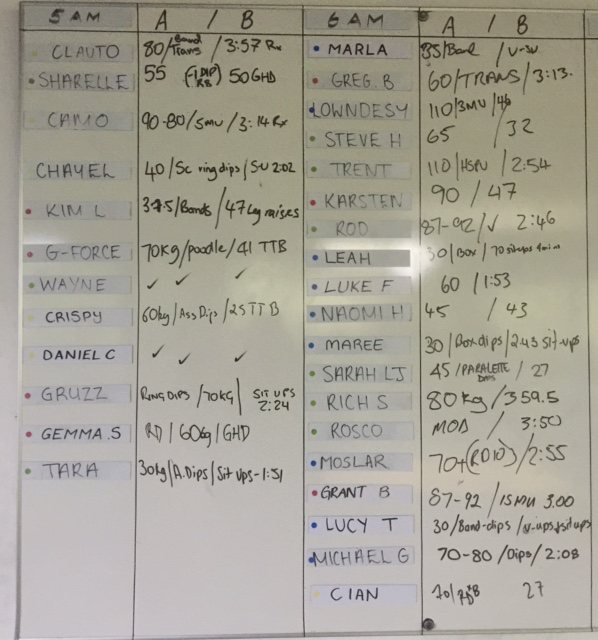 5 AM A / B
CLAUTO 80/Band Trans / 3:57 Rx
SHARELLE 55 (-1 DIP RB) 50 GHD
CAMO 90-80/5MU / 3:14 Rx
CHAYEL 40/Sc ring dips/SU 2:02
KIM L /Bands/47 Leg raises
G-FORCE 70kg/poodle/41 TTB
WAYNE ✓ ✓ ✓
CRISPY 60kg/Ass Dips/25 TTB
DANIEL C ✓ ✓ ✓
GRUZZ RING DIPS /70KG/ SIT UPS 2:24
GEMMA.S RD / 60kg/GHD
TARA 30kg/A.Dips/Sit ups-1:51
6 AM A / B
MARLA 35/Band /
GREG. B 60/TRANS/3:13.
LOWNDESY 110/3MU/46
STEVE H 65 / 32
TRENT 110/HSPU / 2:54
KARSTEN 90 / 47
ROD 87-92/✓ 2:46
LEAH 30/Box / 70 situps
LUKE F 60 /1:53
NAOMI H 45 / 43
MAREE 30/Box dips/2:43 sit-ups
SARAH LJ 45/PARALETTE DIPS / 27
RICH S 80kg/359.5
ROSCO MOD / 3:50
MOSLAR 70+(RD10)/2:55
GRANT B 87-92 /15MU 3.00
LUCY T 30/Band-dips/v-ups+situps
MICHAEL G 70-80/Dips/2:08
CIAN 70/ 27